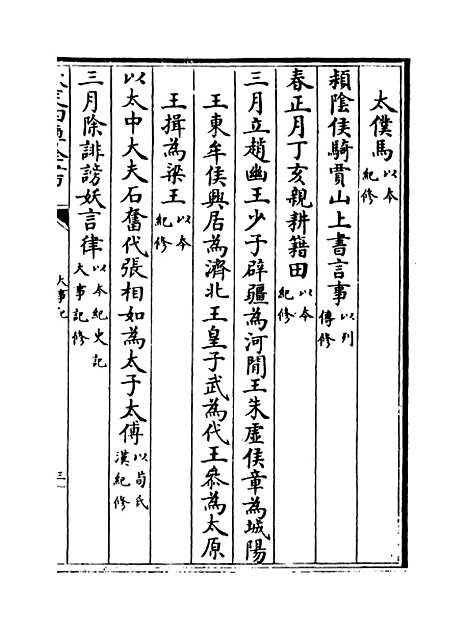 太僕馬以本紀修
潁陰侯騎賁山上書言事以列傳修
春正月丁亥親耕籍田以本紀修
三月立趙幽王少子辟疆為河間王朱虛侯章為城陽
王東牟侯興居為濟北王皇子武為代王叅為太原
王揖為梁王以本紀修
以太中大夫石奮代張相如為太子太傅以荀氏漢紀修
三月除誹謗妖言律以本紀史記大事記修
大事記